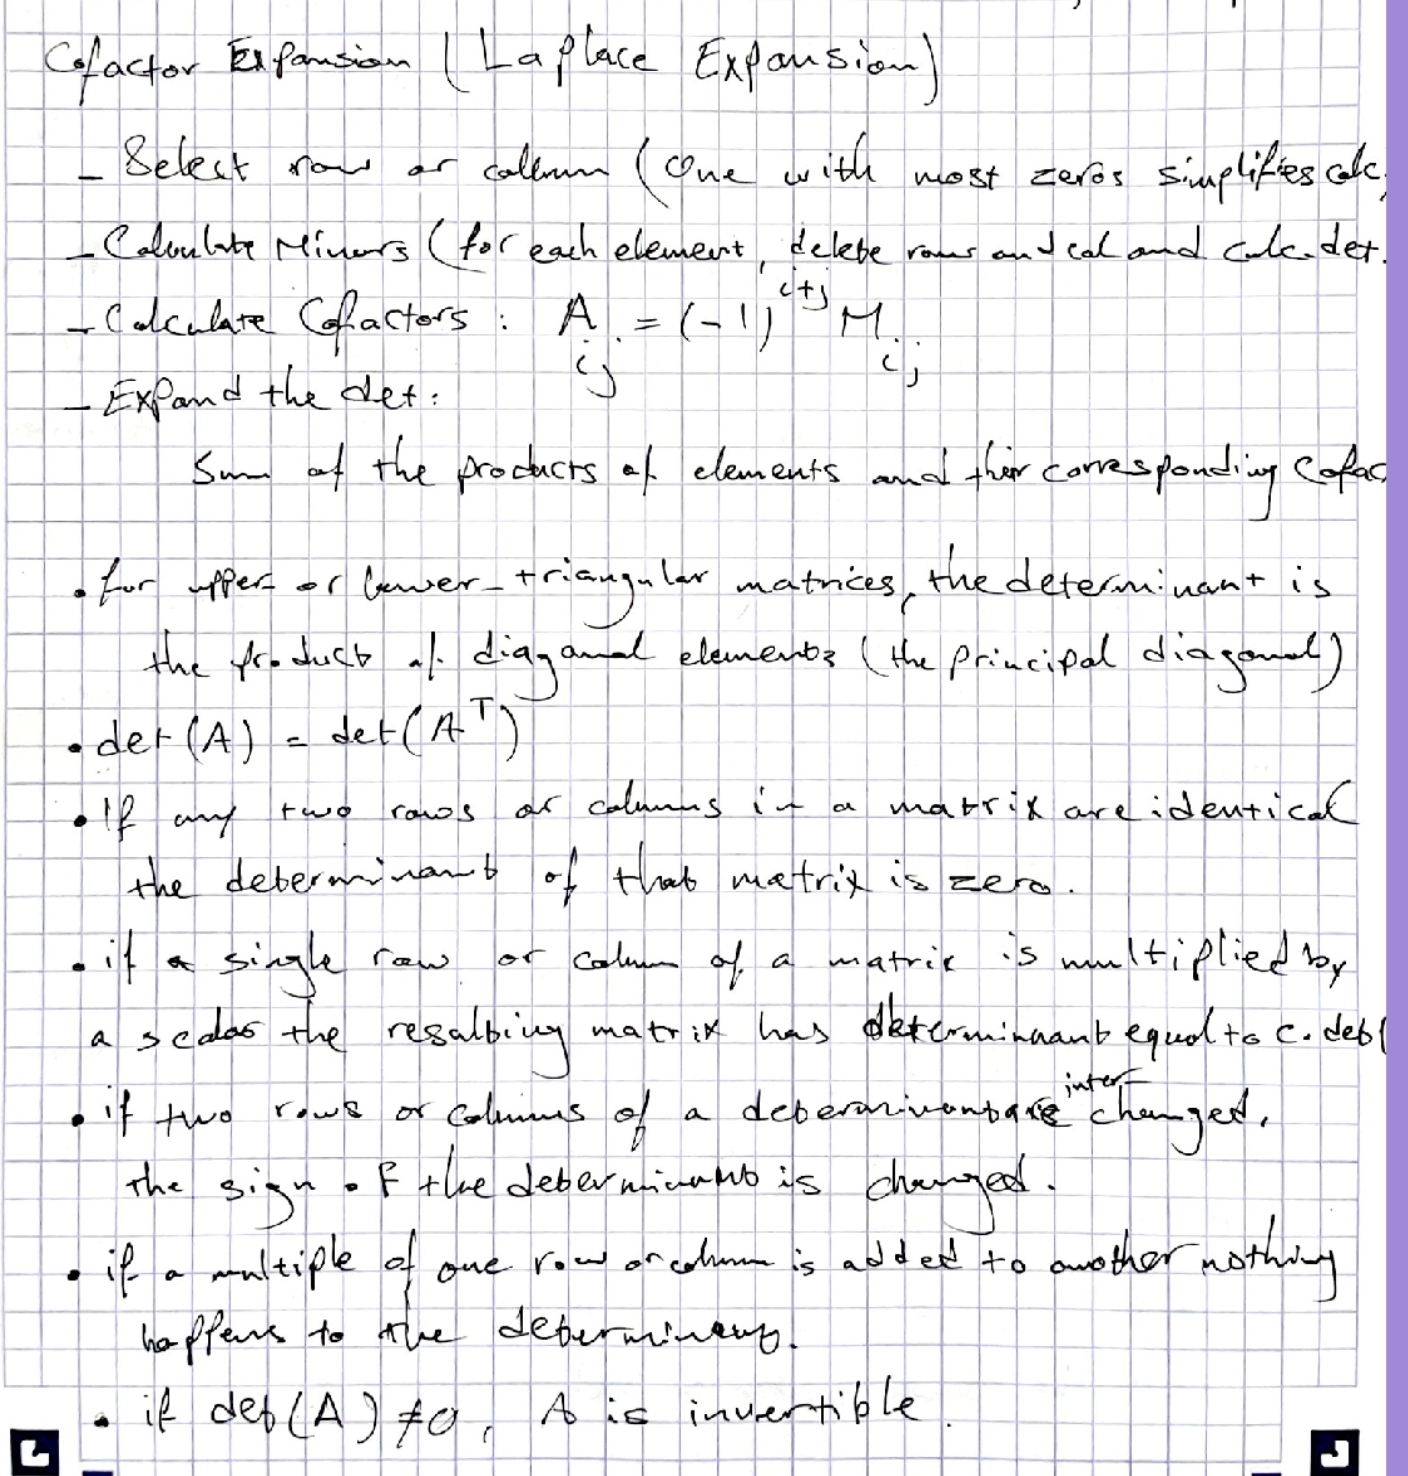 Cofactor Expansion (Laplace Expansion)
- Select row or collumn (one with most zeros simplifies calc.
- Calculate Minors (for each element, delete rows and col and calc. det.
- Calculate Cofactors: A_ij = (-1)^i+j M_ij
- Expand the det:
Sum of the products of elements and their corresponding Cofac
• for upper- or lower-triangular matrices, the determinant is
the product of diagonal elements (the principal diagonal)
• det(A) = det(A^T)
• If any two rows or columns in a matrix are identical
the determinant of that matrix is zero.
• if a single row or column of a matrix is multiplied by
a scalar the resulting matrix has determinnant equal to c. det(
• if two rows or columns of a determinant are interchanged,
the sign of the determinant is changed.
• if a multiple of one row or column is added to another nothing
happens to the determinant.
• if det(A) ≠ 0, A is invertible.